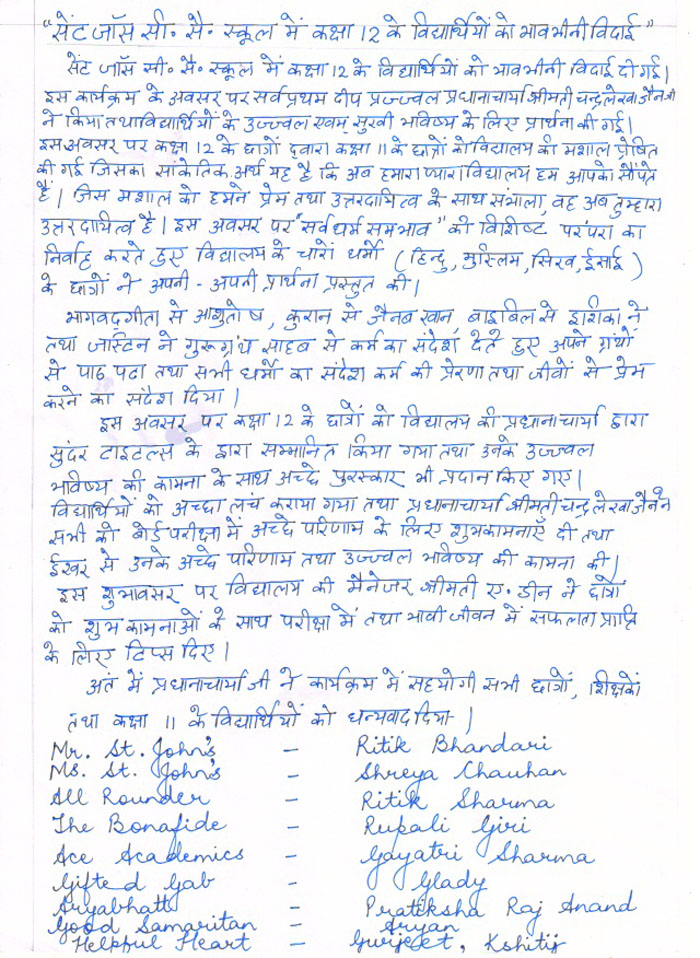 “सेंट जॉस सी॰ सै॰ स्कूल में कक्षा 12 के विद्यार्थियों को भावभीनी विदाई”
सेंट जॉस सी॰ सै॰ स्कूल में कक्षा 12 के विद्यार्थियों को भावभीनी विदाई दी गई।
इस कार्यक्रम के अवसर पर सर्वप्रथम दीप प्रज्ज्वल प्रधानाचार्या श्रीमती चन्द्रलेखा जैन जी
ने किया तथा विद्यार्थियों के उज्ज्वल एवम् सुखी भविष्य के लिए प्रार्थना की गई।
इस अवसर पर कक्षा 12 के छात्रों द्वारा कक्षा 11 के छात्रों को विद्यालय की मशाल प्रेषित
की गई जिसका सांकेतिक अर्थ यह है कि अब हमारा प्यारा विद्यालय हम आपको सौंपते
हैं। जिस मशाल को हमने प्रेम तथा उत्तरदायित्व के साथ संभाला, वह अब तुम्हारा
उत्तरदायित्व है। इस अवसर पर “सर्व धर्म समभाव” की विशिष्ट परंपरा का
निर्वाह करते हुए विद्यालय के चारों धर्मों (हिन्दू, मुस्लिम, सिख, ईसाई)
के छात्रों ने अपनी - अपनी प्रार्थना प्रस्तुत की।
भागवदगीता से आशुतोष, कुरान से जैनब खान, बाइबिल से इशिका ने
तथा जास्टिन ने गुरूग्रंथ साहब से कर्म का संदेश देते हुए अपने ग्रंथों
से पाठ पढा तथा सभी धर्मों का संदेश कर्म की प्रेरणा तथा जीवों से प्रेम
करने का संदेश दिया।
इस अवसर पर कक्षा 12 के छात्रों को विद्यालय की प्रधानाचार्या द्वारा
सुंदर टाइटल्स के द्वारा सम्मानित किया गया तथा उनके उज्ज्वल
भविष्य की कामना के साथ अच्छे पुरस्कार भी प्रदान किए गए।
विद्यार्थियों को अच्छा लंच कराया गया तथा प्रधानाचार्या श्रीमती चन्द्रलेखा जैन ने
सभी को बोर्ड परीक्षा में अच्छे परिणाम के लिए शुभकामनाएँ दी तथा
ईश्वर से उनके अच्छे परिणाम तथा उज्ज्वल भविष्य की कामना की।
इस शुभावसर पर विद्यालय की मैनेजर श्रीमती ए॰ डीन ने छात्रों
को शुभ कामनाओं के साथ परीक्षा में तथा भावी जीवन में सफलता प्राप्ति
के लिए टिप्स दिए।
अंत में प्रधानाचार्या जी ने कार्यक्रम में सहयोगी सभी छात्रों, शिक्षकों
तथा कक्षा 11 के विद्यार्थियों को धन्यवाद दिया।
Mr. St. John's - Ritik Bhandari
Ms. St. John's - Shreya Chauhan
All Rounder - Ritik Sharma
The Bonafide - Rupali Giri
Ace Academics - Gayatri Sharma
Gifted Gab - Glady
Aryabhatt - Pratiksha Raj Anand
Good Samaritan - Aryan
Helpful Heart - Gurjeet, Kshitij